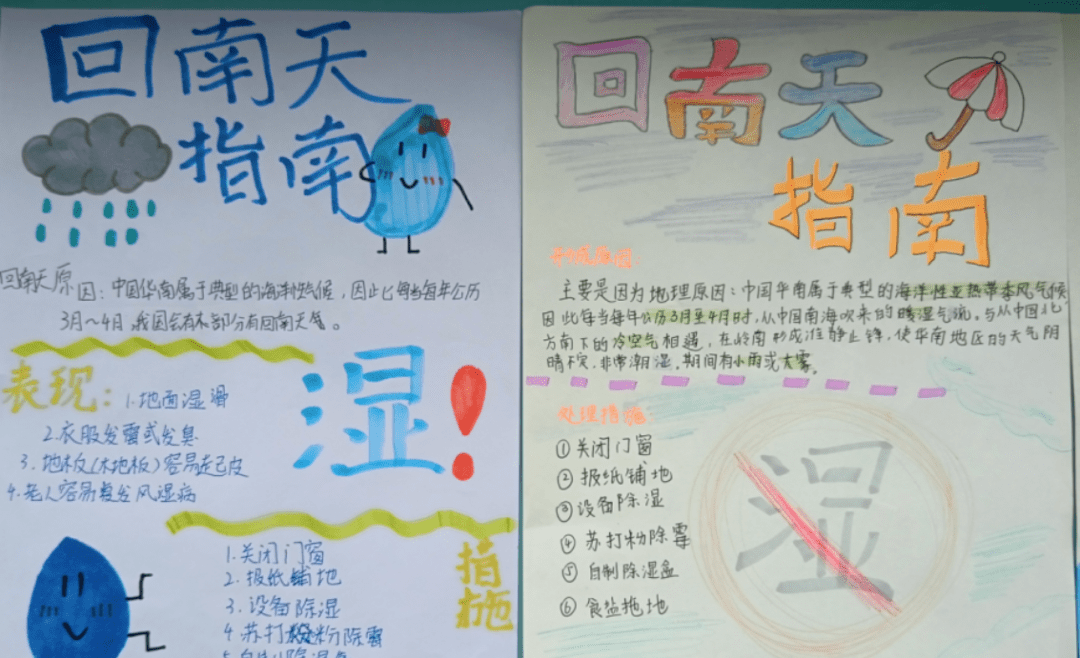 回南天
指南
回南天原因：中国华南属于典型的海洋性气候，因此每当每年公历
3月～4月，我国会有部分有回南天气。
表现：1.地面湿滑
2.衣服发霉或发臭
3.地板(木地板)容易起皮
4.老人容易复发风湿病
湿！
措施
1.关闭门窗
2.报纸铺地
3.设备除湿
4.苏打粉除霉
5.自制除湿盒
回南天
指南
形成原因：
主要是因为地理原因：中国华南属于典型的海洋性亚热带季风气候
因此每当每年公历3月至4月时，从中国南海吹来的暖湿气流。与从中国北
方南下的冷空气相遇，在岭南形成准静止锋，使华南地区的天气阴
晴不定，非常潮湿。期间有小雨或大雾。
处理措施：
①关闭门窗
②报纸铺地
③设备除湿
④苏打粉除霉
⑤自制除湿盒
⑥食盐拖地
湿